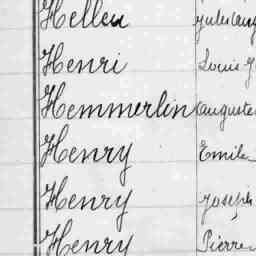 Helleu Jules
Henri Louis J
Hemmerlin Auguste
Henry Emile
Henry Joseph
Henry Pierre